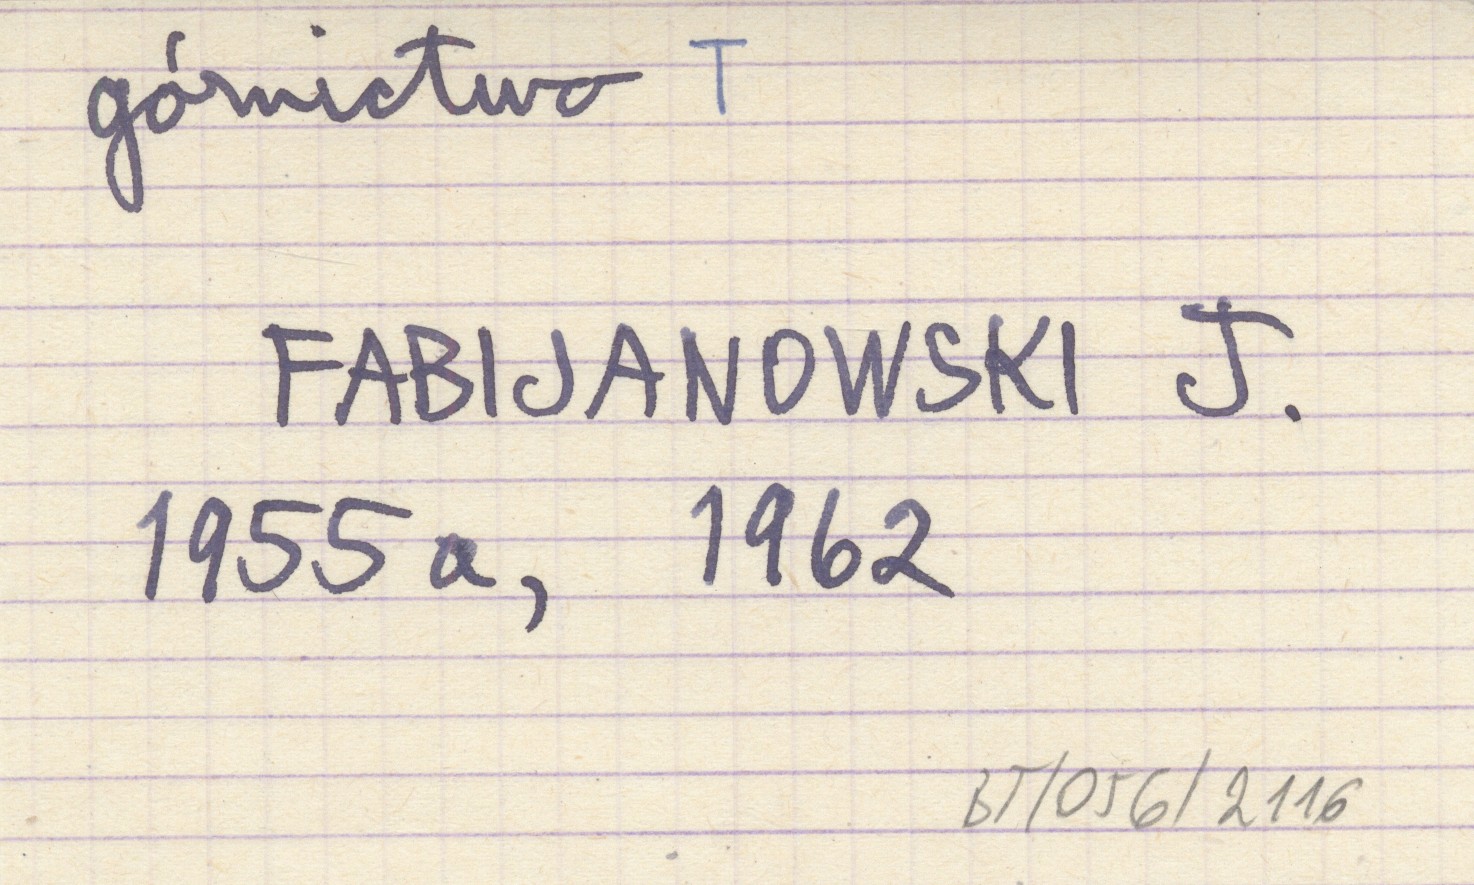 górnictwo T
FABIJANOWSKI J.
1955a, 1962
BT/056/2116